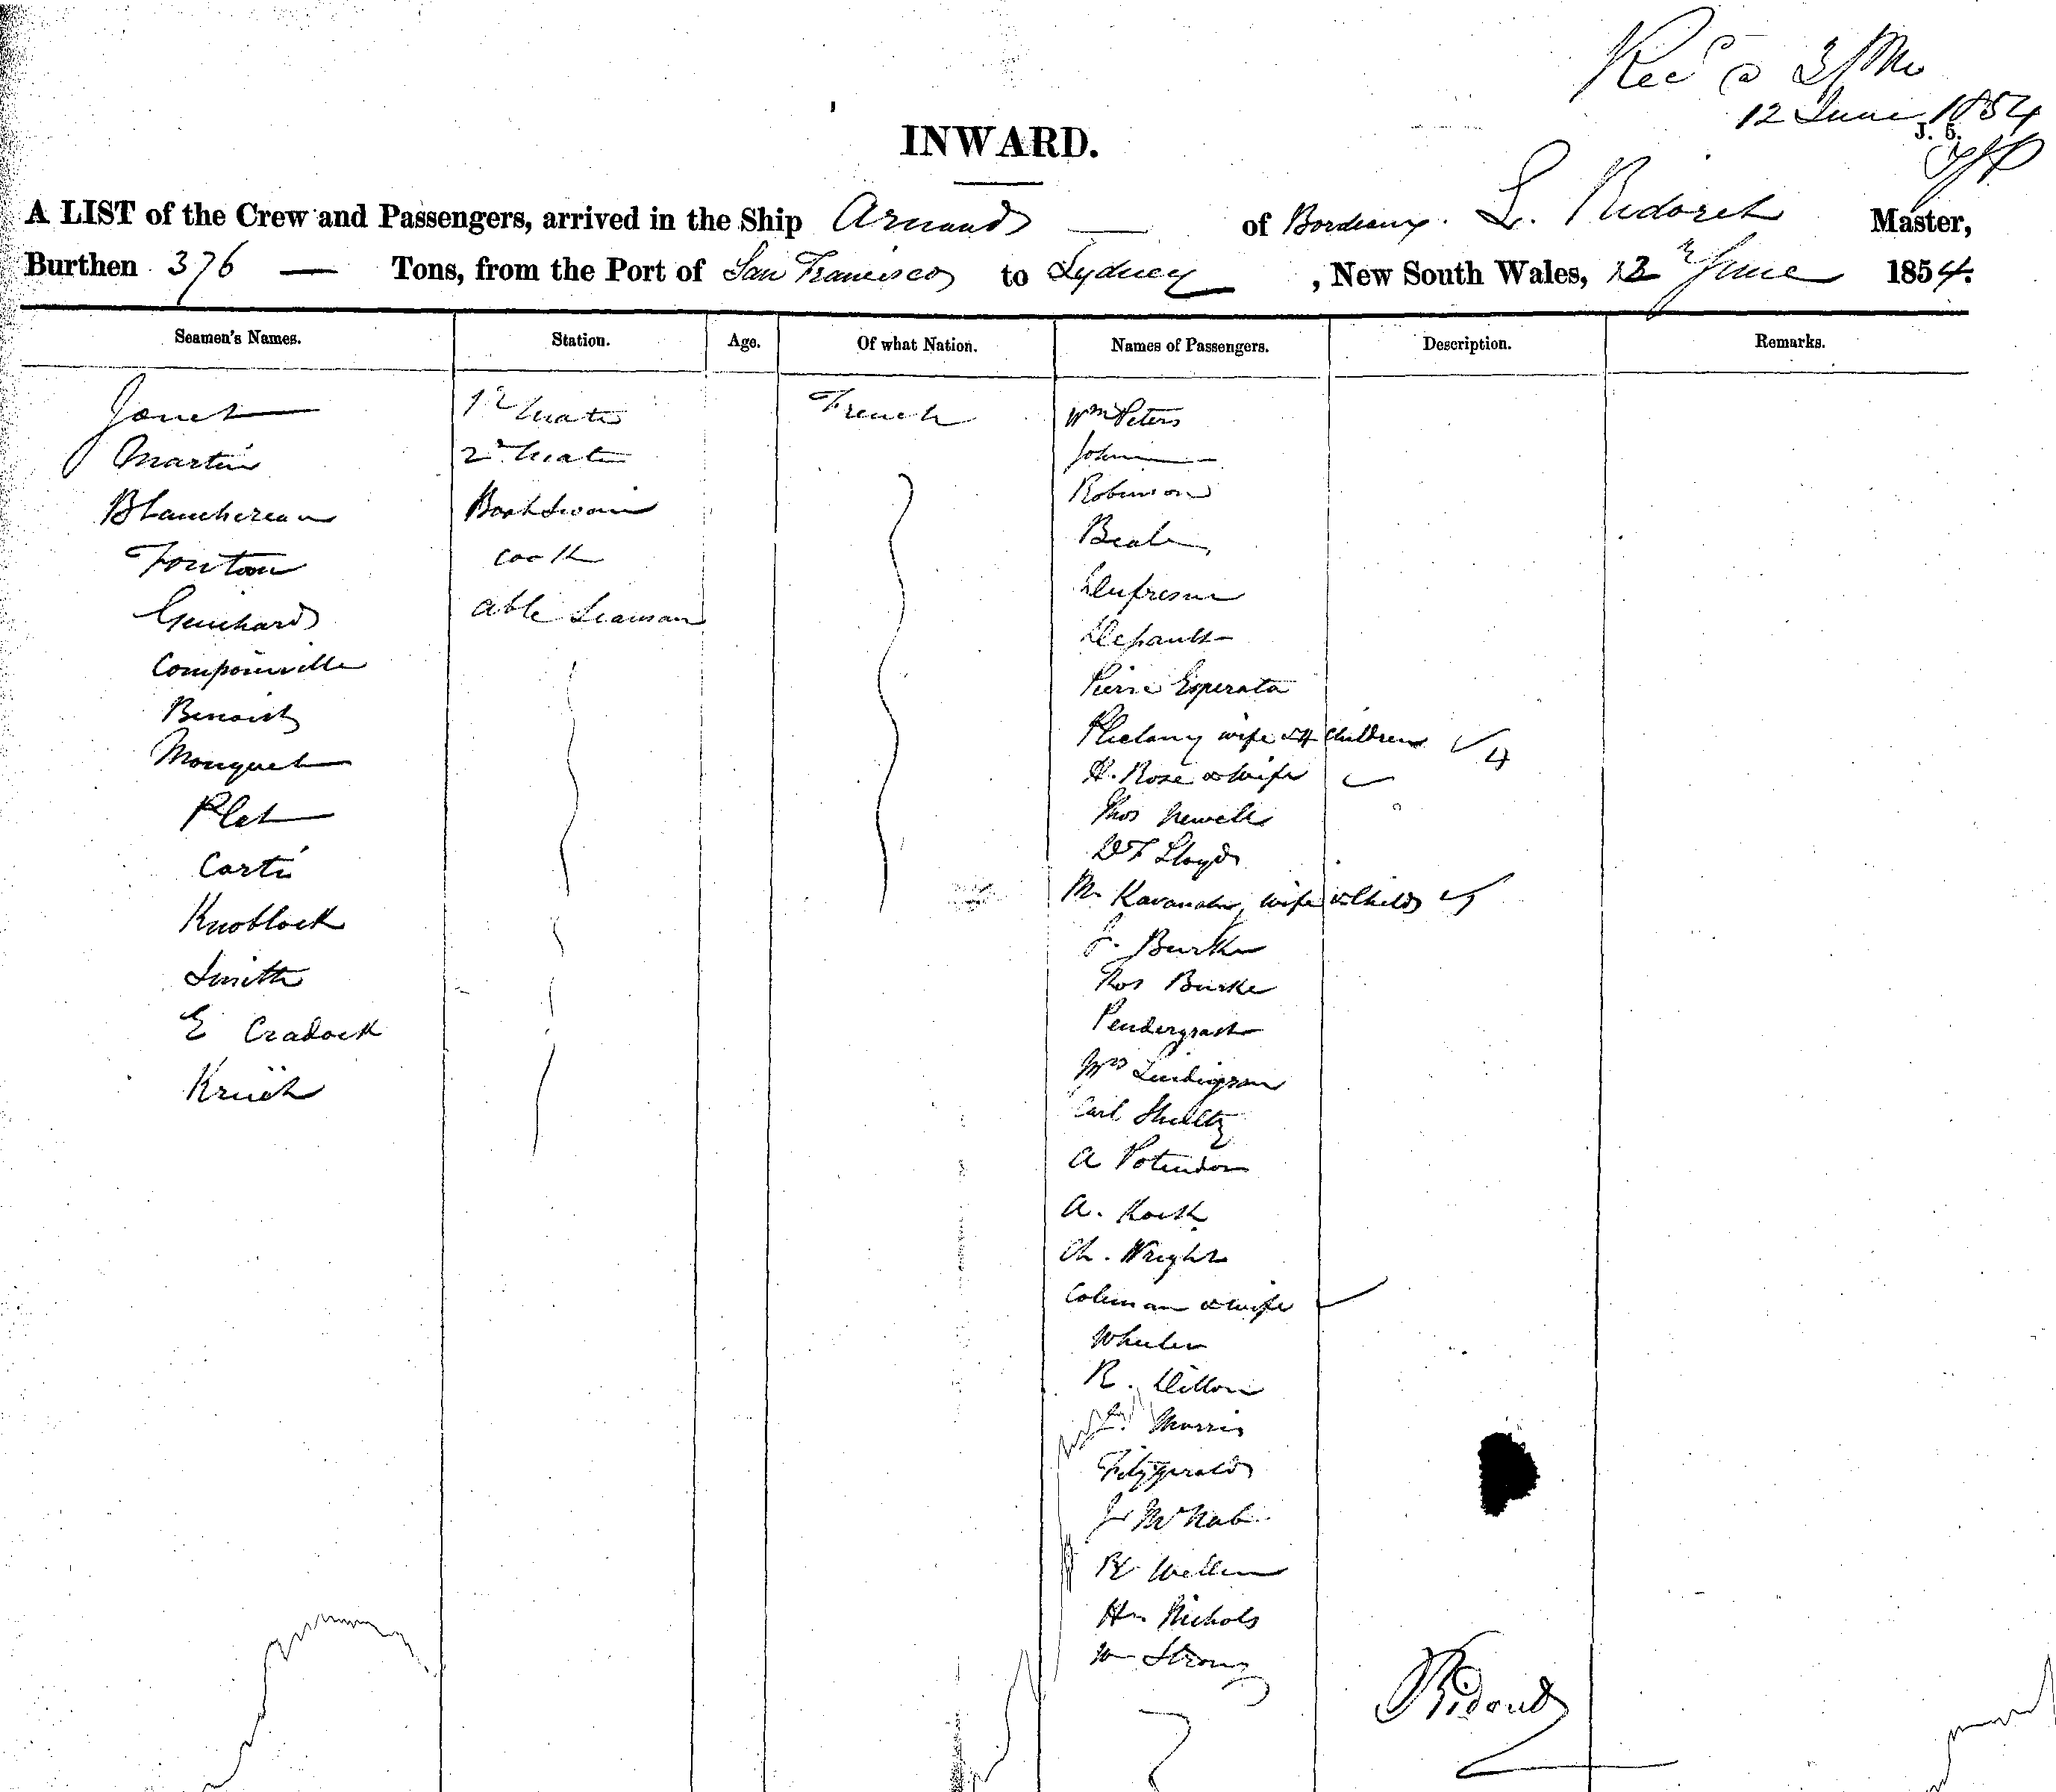 Recd @ 3 PM
12 June 1854
J. 5.
INWARD.
A LIST of the Crew and Passengers, arrived in the Ship Arnaud of Bordeaux. L. Master,
Burthen 376 — Tons, from the Port of San Francisco to Sydney, New South Wales, 12 June 1854.
Seamen's Names. Station. Age. Of what Nation. Names of Passengers. Description. Remarks.
Janet 1r Mate French Wm Peters
Martin 2d Mate John
Blanchereau Boatswain Robinson
Fontan Cook Beale
Guichard Able Seaman Dufresne
Depault
Pierre Esperata
Benoist wife & 4 children 4
Mouquet H. Rose & wife
Plet Thos Newell
Lloyd
Knoblock Kavanah, wife & child
Smith J. Burke
E Cradock Thos Burke
Pendergrast
Mrs
Carl Shultz
A
A.
Ch. Wright
Coleman & wife
Wheeler
R. Dillon
Morris
Fitzgerald
J McNab
Hn Nichols
Wm Strong